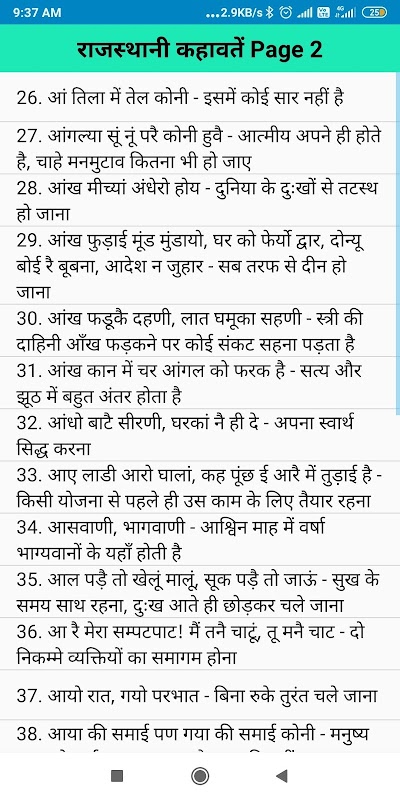 9:37 AM
...2.9KB/s
4G
25
राजस्थानी कहावतें Page 2
26. आं तिला में तेल कोनी - इसमें कोई सार नहीं है
27. आंगल्या सूं नूं परै कोनी हुवै - आत्मीय अपने ही होते
है, चाहे मनमुटाव कितना भी हो जाए
28. आंख मीच्यां अंधेरो होय - दुनिया के दुःखों से तटस्थ
हो जाना
29. आंख फुड़ाई मूंड मुंडायो, घर को फेर्यो द्वार, दोन्यू
बोई रै बूबना, आदेश न जुहार - सब तरफ से दीन हो
जाना
30. आंख फडूकै दहणी, लात घमूका सहणी - स्त्री की
दाहिनी आँख फड़कने पर कोई संकट सहना पड़ता है
31. आंख कान में चर आंगल को फरक है - सत्य और
झूठ में बहुत अंतर होता है
32. आंधो बाटै सीरणी, घरकां नै ही दे - अपना स्वार्थ
सिद्ध करना
33. आए लाडी आरो घालां, कह पूंछ ई आरै में तुड़ाई है -
किसी योजना से पहले ही उस काम के लिए तैयार रहना
34. आसवाणी, भागवाणी - आश्विन माह में वर्षा
भाग्यवानों के यहाँ होती है
35. आल पड़ै तो खेलूं मालूं, सूक पड़ै तो जाऊं - सुख के
समय साथ रहना, दुःख आते ही छोड़कर चले जाना
36. आ रै मेरा सम्पटपाट! मैं तनै चाटूं, तू मनै चाट - दो
निकम्मे व्यक्तियों का समागम होना
37. आयो रात, गयो परभात - बिना रुके तुरंत चले जाना
38. आया की समाई पण गया की समाई कोनी - मनुष्य